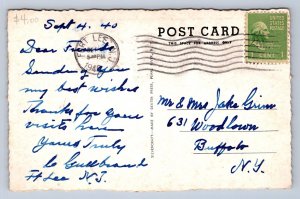 $4.00
Sept 4. 40
Dear Friends
Sunday you
my best wishes
Thanks for your
visits here
Yours Truly
Gullbrand
Ft Lee N.J.
FORT LEE
5 PM
1940
POST CARD
THIS SPACE FOR ADDRESS ONLY
UNITED STATES
1
Mr & Mrs Jake Grim
631 Woodlawn
Buffalo
N.Y.